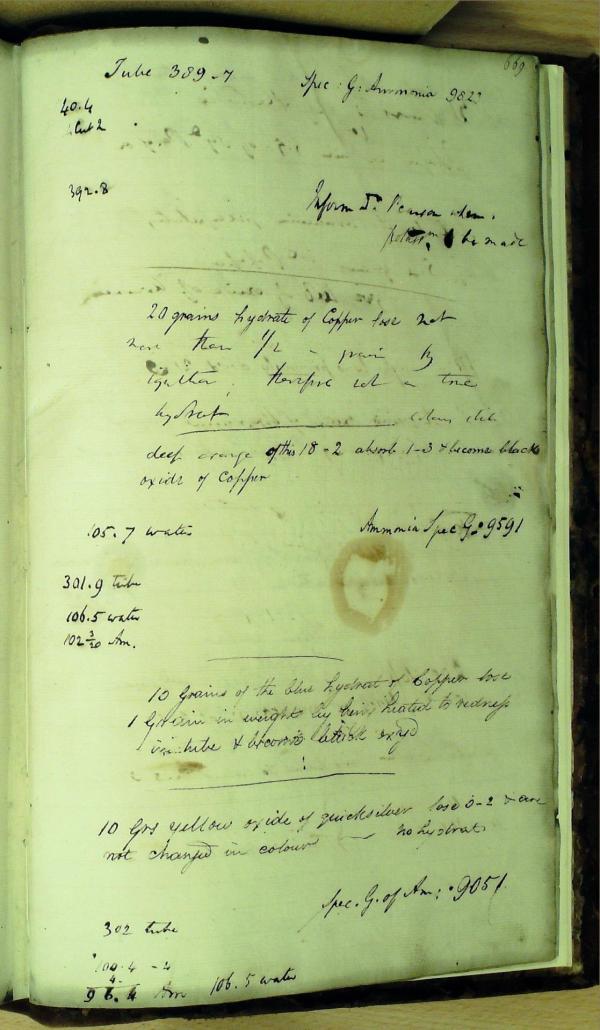 669
Tube 389-7 Spec: G: Ammonia 982
40.4
2
392.8
Inform Dr. Pearson when
be made
20 grains hydrate of Copper lose not
more than 1/2 a grain by
ignition. therefore not a true
hydrate colour
deep orange of this 18-2 absorb 1-3 & become black
oxide of Copper
105.7 water Ammonia Spec G: 9591
301.9 tube
106.5 water
102 3/20 Am.
10 Grains of the blue hydrat of Copper lose
1 Grain in weight by being heated to redness
in tube & become black oxyd
10 Grs Yellow oxide of quicksilver lose 0-2 & are
not changed in colour — no hydrat
Spec. G. of Am: .9051
302 tube
100.4 -4
4
96.4 Am 106.5 water